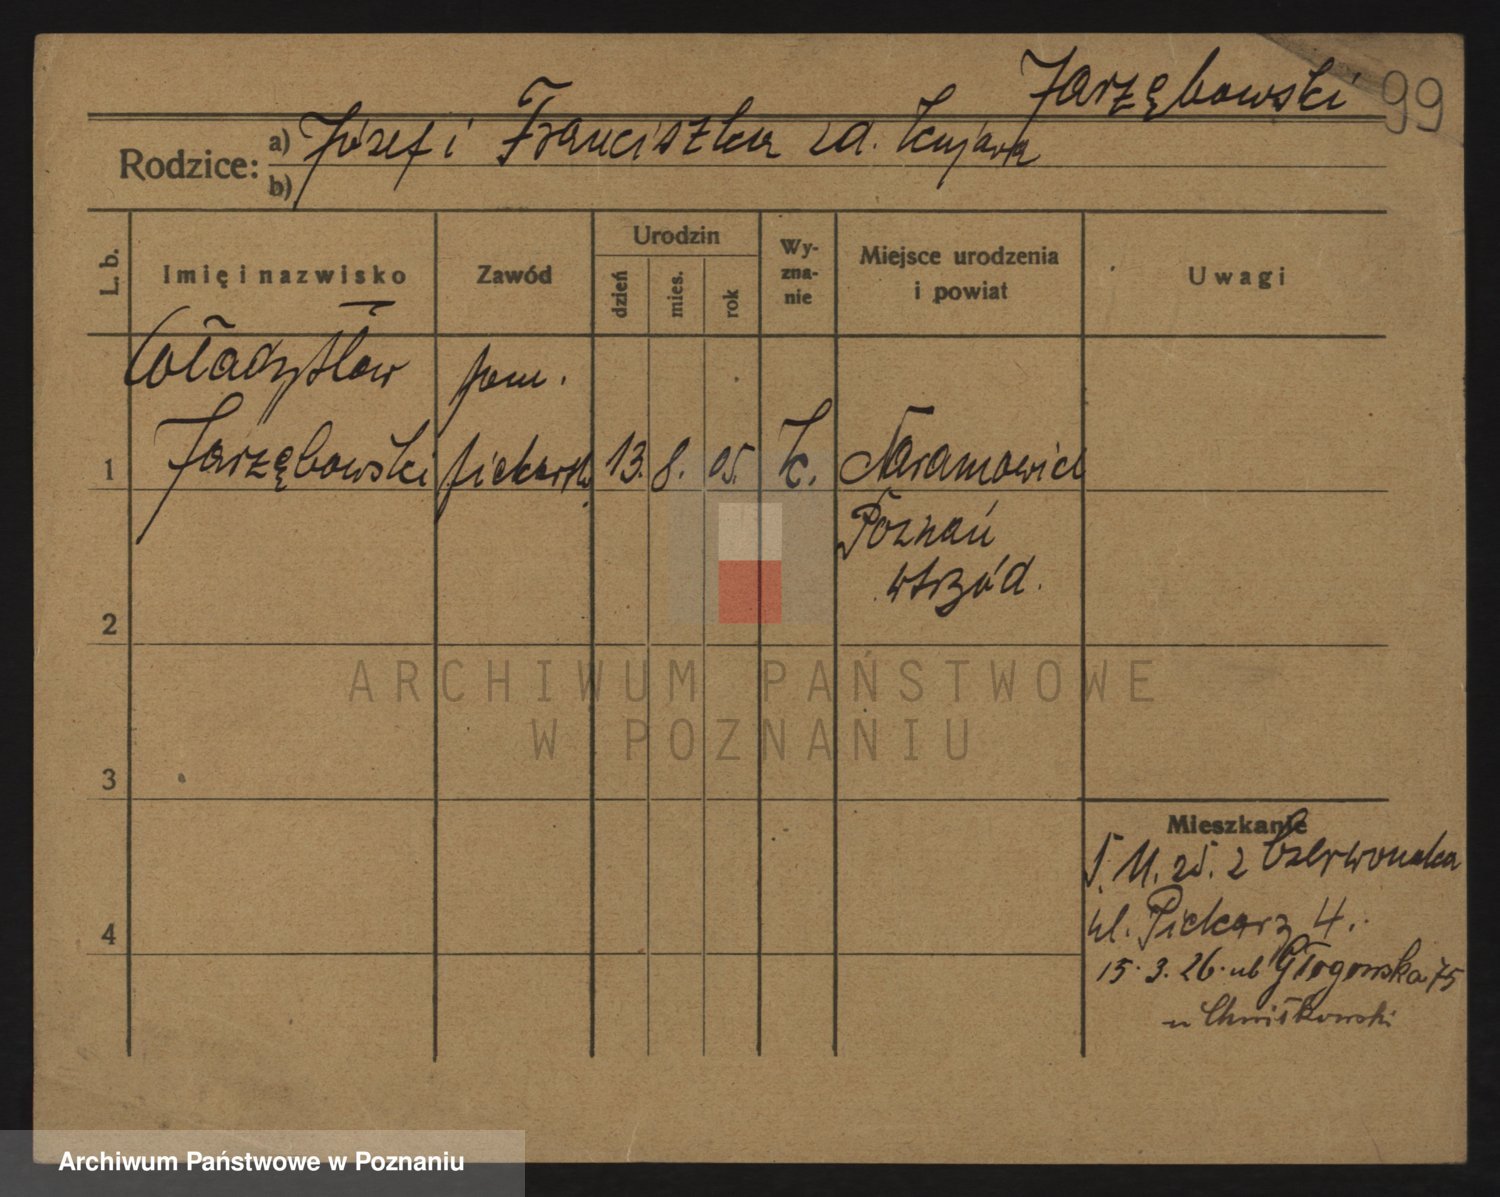 Jarzębowski 99
Rodzice: a) Józef i Franciszka zd. Kujawa
b)
L. b. Imię i nazwisko Zawód Urodzin dzień mies. rok Wy-zna-nie Miejsce urodzenia i powiat Uwagi
Władysław pom.
1 Jarzębowski piekarsk. 13. 8. 05. k. Naramowice
Poznań
wschód.
2
3
4
Mieszkanie
5. 11. 25. z Czerwonaka
ul. Piekary 4.
15. 3. 26. ul. Głogowska 75
u
ARCHIWUM PAŃSTWOWE
W POZNANIU
Archiwum Państwowe w Poznaniu